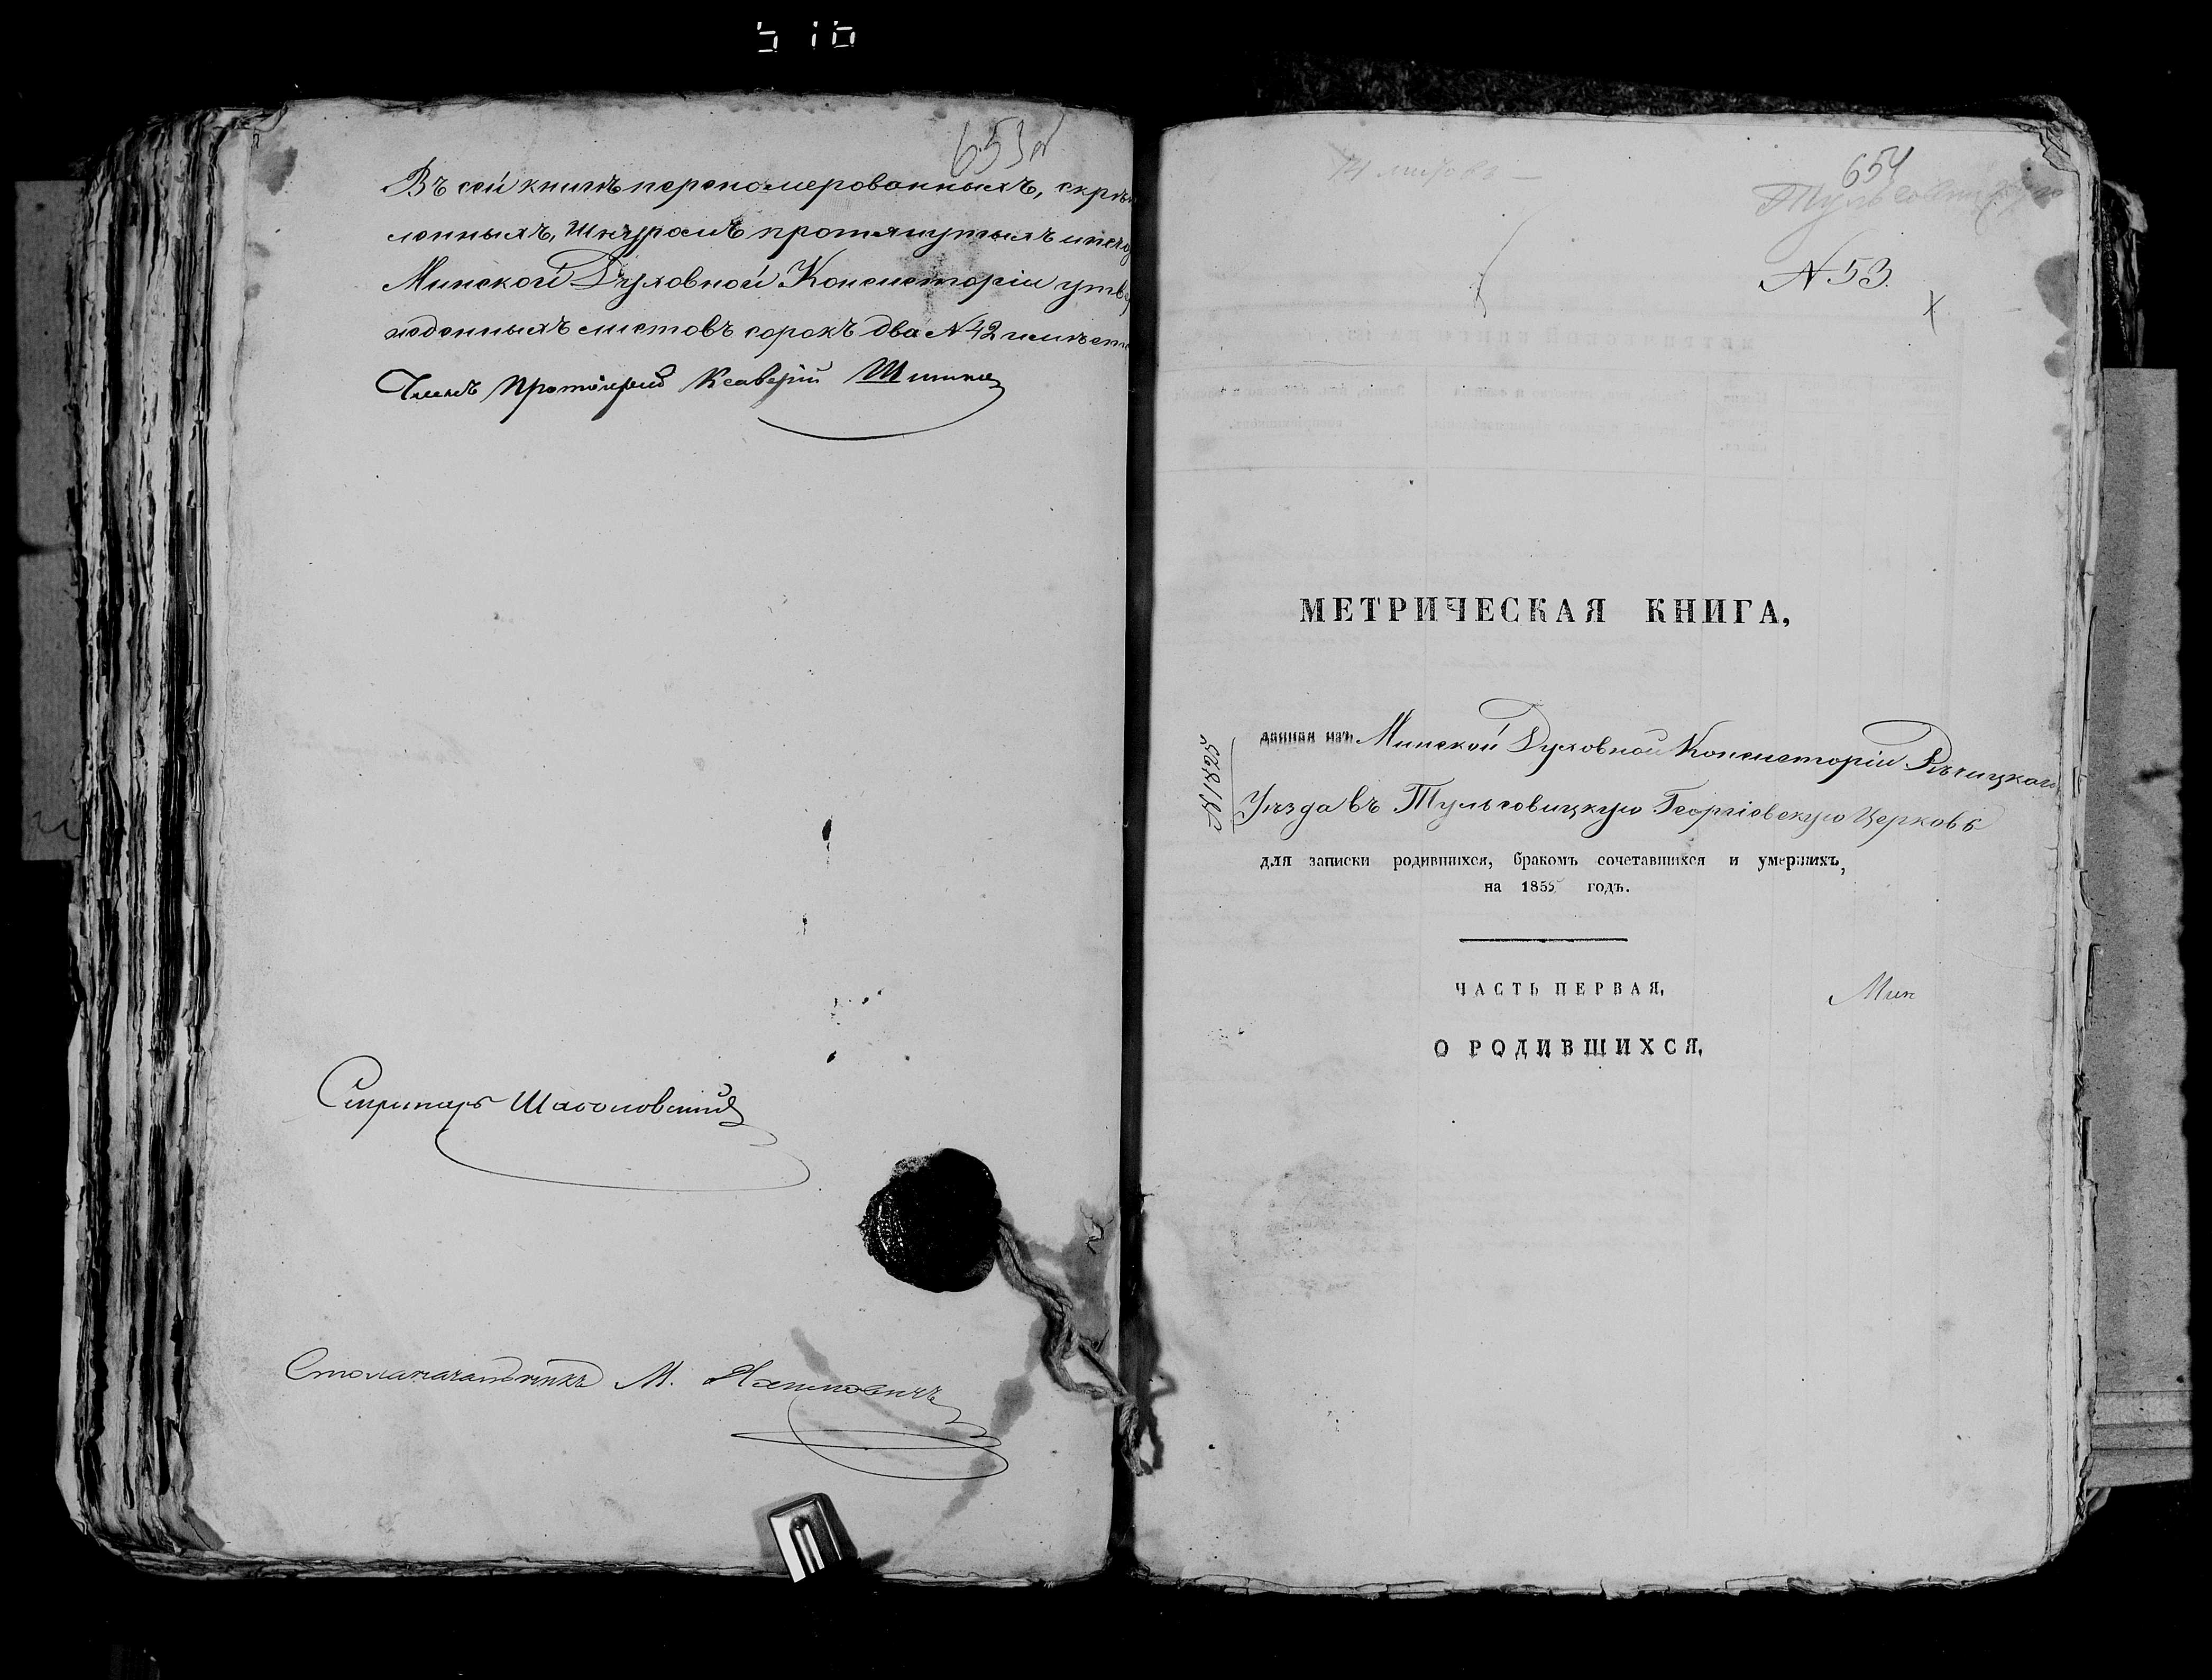 653об
Въ сей книгѣ перенумерованныхъ, скрѣп
ленныхъ, шнуромъ протянутыхъ и печа
Минской Духовной Консисторіи утвер
жденныхъ листовъ сорокъ два №42
Членъ Протоіерей Ксаверій
Секретарь
Столоначальникъ М.
654
№ 53.
МЕТРИЧЕСКАЯ КНИГА,
данная изъ Минской Духовной Консисторіи Рѣчицкаго
Уѣзда въ Тульговицкую Георгіевскую Церковь
для записки родившихся, бракомъ сочетавшихся и умершихъ,
на 1855 годъ.
ЧАСТЬ ПЕРВАЯ,
Мин
О РОДИВШИХСЯ,